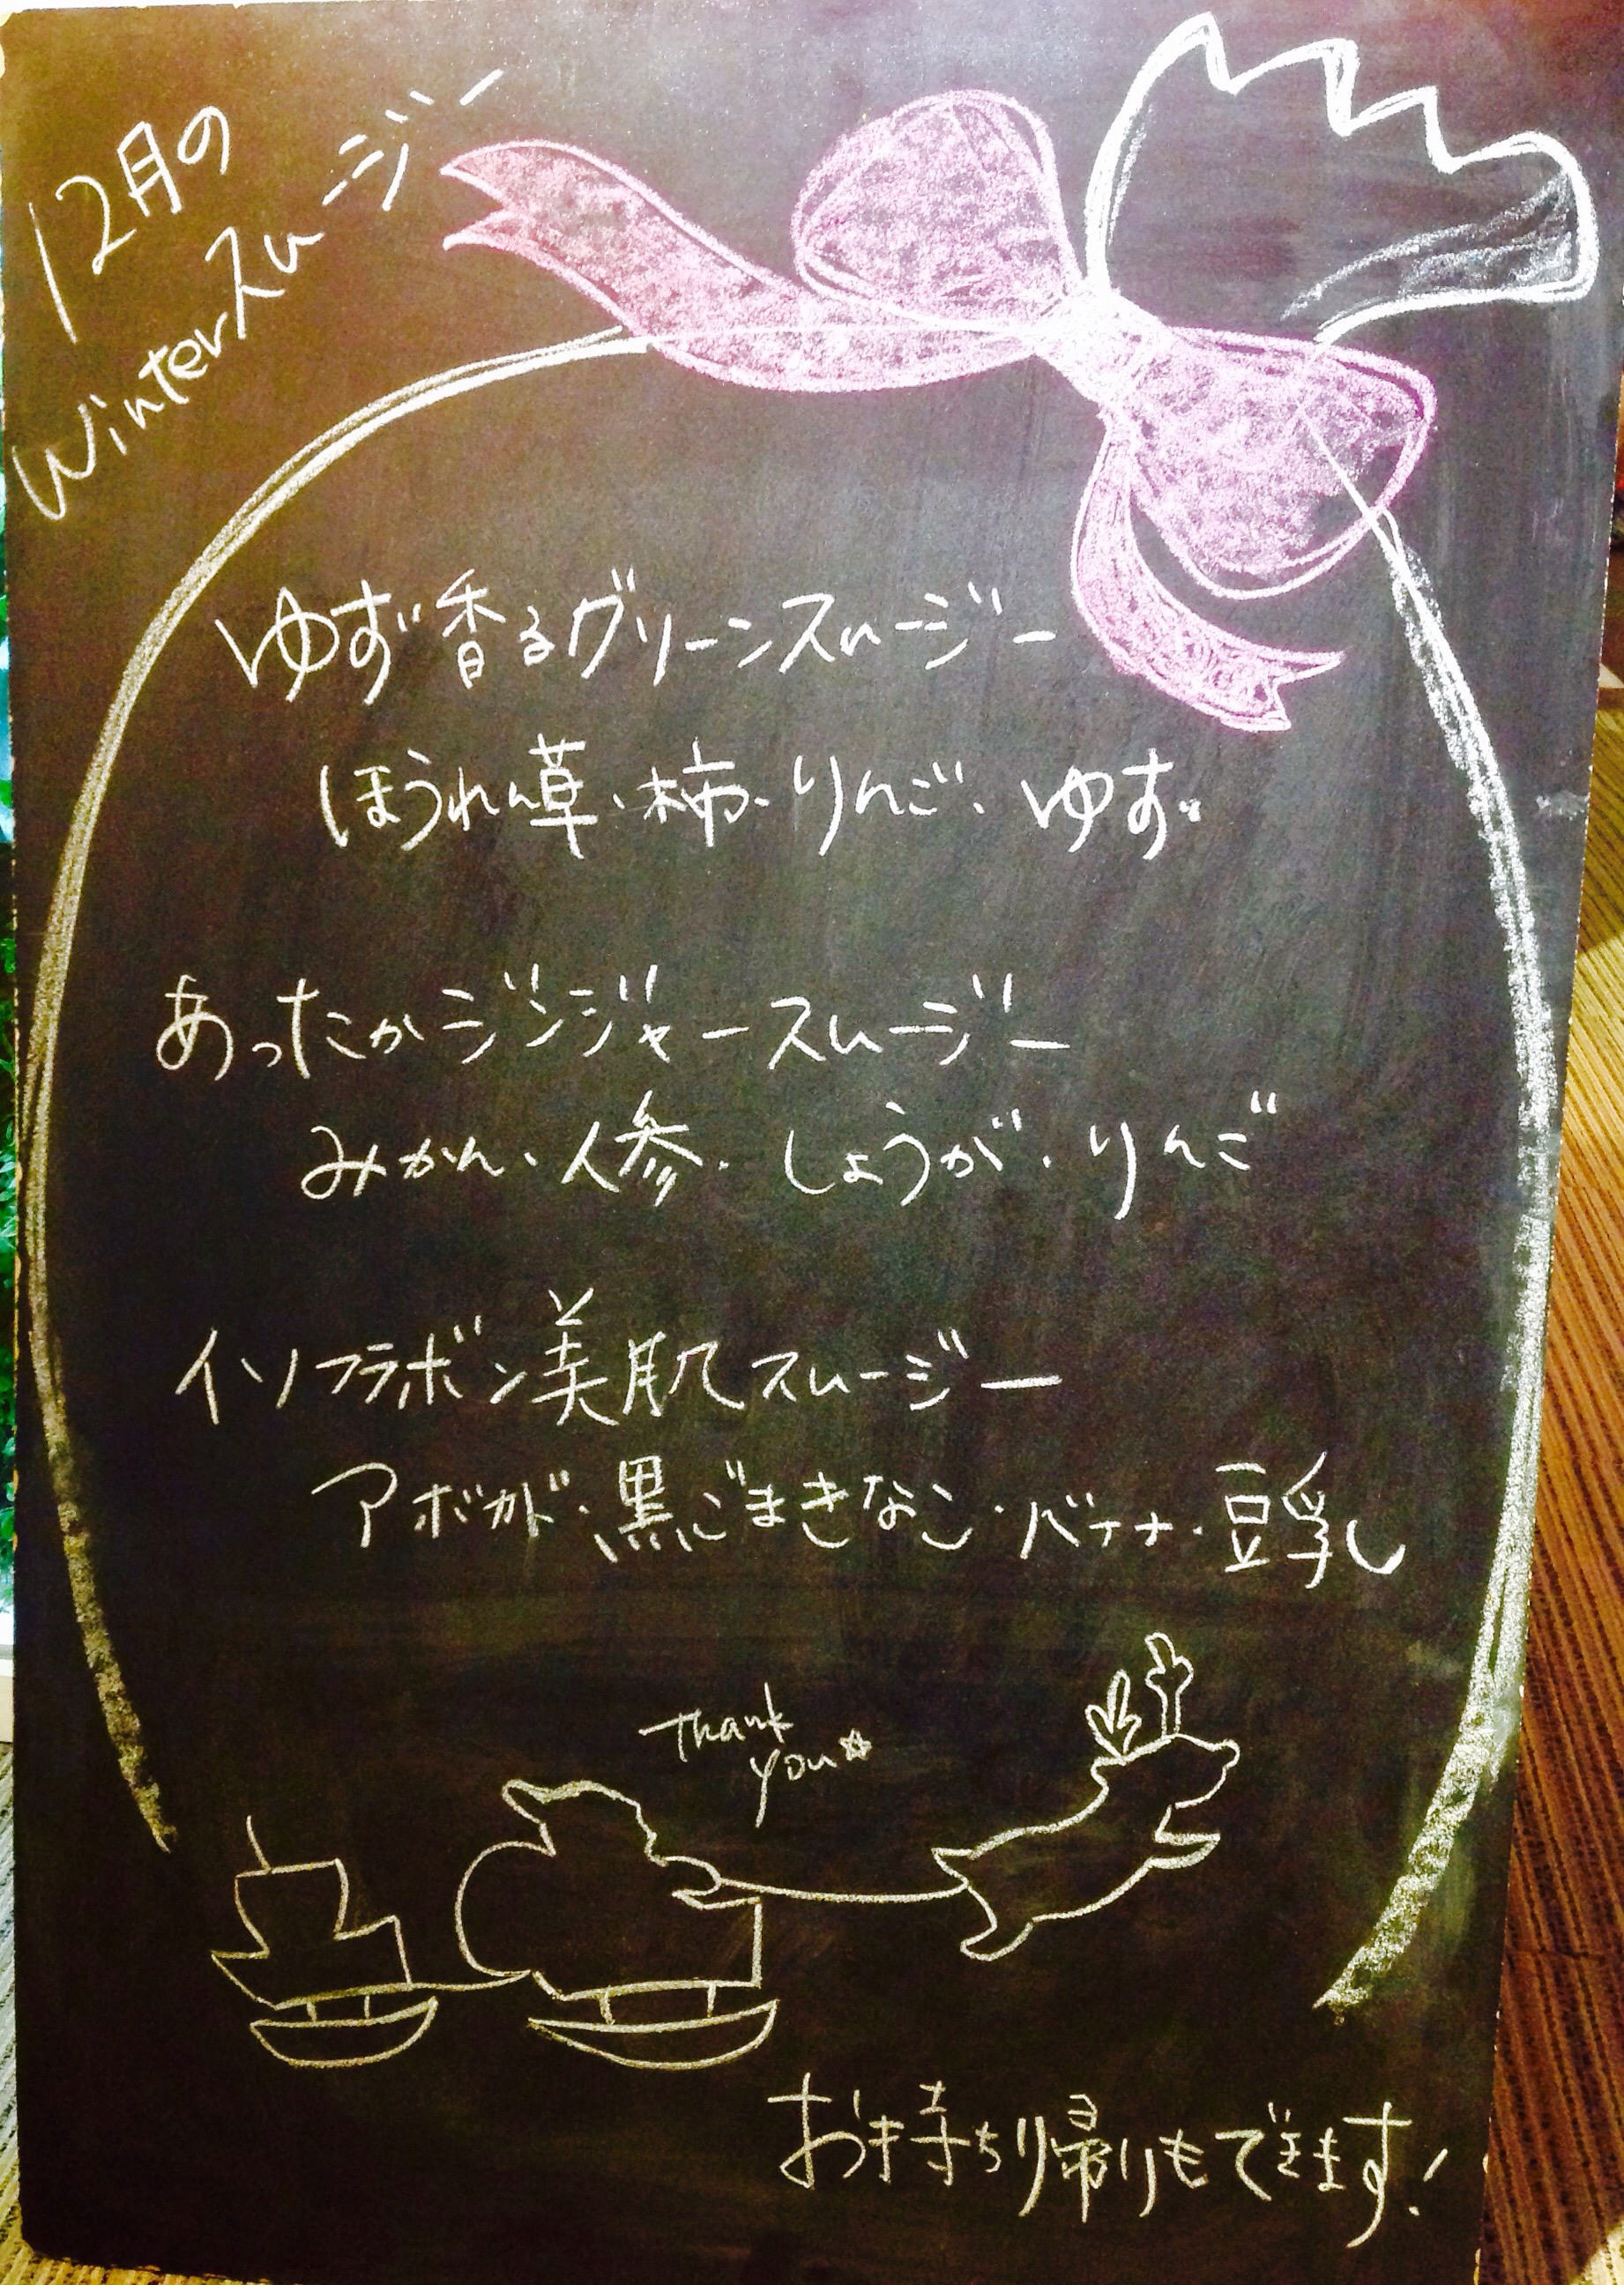 12月の
Winterスムージー
ゆず香るグリーンスムージー
ほうれん草・柿・りんご・ゆず
あったかジンジャースムージー
みかん・人参・しょうが・りんご
イソフラボン美肌スムージー
アボカド・黒ごまきなこ・バナナ・豆乳
Thank
you☆
お持ち帰りもできます!